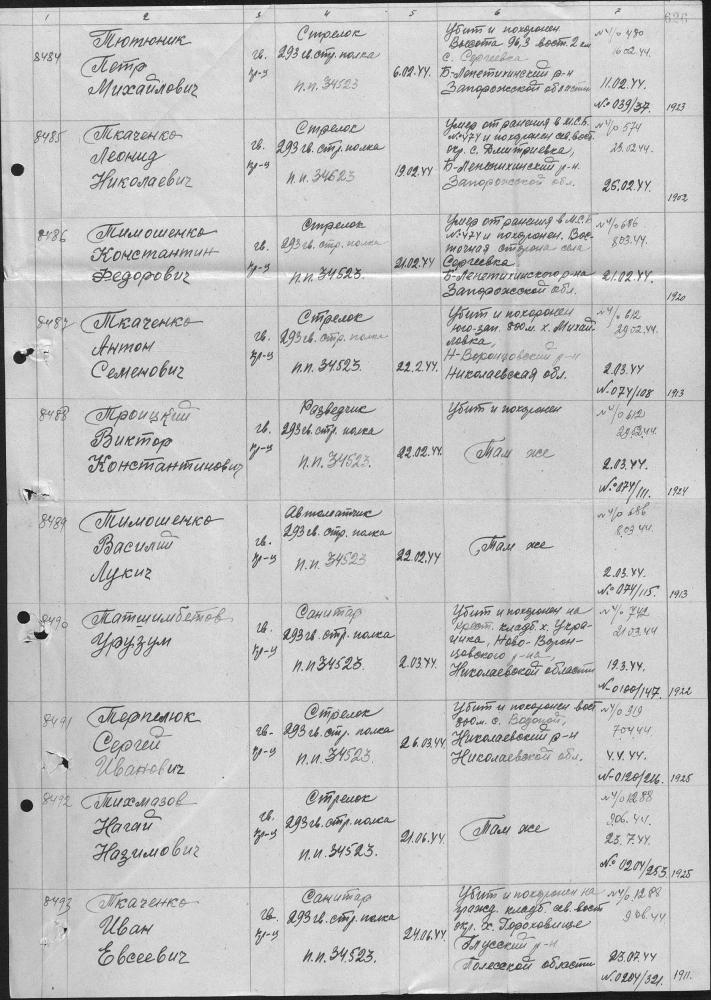 626
1 2 3 4 5 6 7
8484
Тютюник
Петр
Михайлович
гв.
кр-ц
Стрелок
293 гв. стр. полка
п.п. 34523
6.02.44.
Убит и похоронен
Высота 96,3 вост. 2 км
с. Сергеевка
Б-Лепетихинский р-н
Запорожской области
№ 4/0 480
16.02.44.
11.02.44.
№ 039/37.
1923
8485
Ткаченко
Леонид
Николаевич
гв.
кр-ц
Стрелок
293 гв. стр. полка
п.п. 34523
19.02.44
Умер от ранения в М.С.Б.
№ 474 и похоронен сев. вост.
окр. с. Дмитриевка,
Б-Лепетихинский р-н.
Запорожской обл.
№ 4/0 574
23.02.44.
25.02.44.
1902
8486
Тимошенко
Константин
Федорович
гв.
кр-ц
Стрелок
293 гв. стр. полка
п.п. 34523.
21.02.44
Умер от ранения в М.С.Б.
№ 474 и похоронен. Вос-
точная сторона села
Сергеевка
Б-Лепетихинского р-на
Запорожской обл.
№ 4/0 686
8.03.44.
21.02.44.
1920
8487
Ткаченко
Антон
Семенович
гв.
кр-ц
Стрелок
293 гв. стр. полка
п.п. 34523.
22.2.44.
Убит и похоронен
юго-зап. 800 м. х. Михай-
ловка,
Н-Воронцовский р-н
Николаевская обл.
№ 4/0 612
29.02.44.
2.03.44.
№ 074/108
1913
8488
Троицкий
Виктор
Константинович
гв.
кр-ц
Разведчик
293 гв. стр. полка
п.п. 34523.
22.02.44.
Убит и похоронен
Там же
№ 4/0 612
29.02.44.
2.03.44.
№ 074/111.
1924
8489
Тимошенко
Василий
Лукич
гв.
кр-ц
Автоматчик
293 гв. стр. полка
п.п. 34523
22.02.44
Там же
№ 4/0 686
8.03.44.
2.03.44.
№ 074/115.
1913
8490
Таташимбетов
Урузум
гв.
кр-ц
Санитар
293 гв. стр. полка
п.п. 34523.
2.03.44.
Убит и похоронен на
крест. кладб. х. Укра-
инка, Ново-Ворон-
цовского р-на,
Николаевской области
№ 4/0 742
21.03.44
19.3.44.
№ 0100/147.
1922
8491
Терпелюк
Сергей
Иванович
гв.
кр-ц
Стрелок
293 гв. стр. полка
п.п. 34523.
26.03.44
Убит и похоронен вост.
800 м. с. Водяной,
Николаевский р-н
Николаевской обл.
№ 4/0 919
7.04.44.
4.4.44.
№ 0120/216.
1925
8492
Тихмазов
Нагай
Назимович
гв.
кр-ц
Стрелок
293 гв. стр. полка
п.п. 34523.
21.06.44.
Там же
№ 4/0 1288
9.06.44.
23.7.44.
№ 0204/253.
1925
8493
Ткаченко
Иван
Евсеевич
гв.
кр-ц
Санитар
293 гв. стр. полка
п.п. 34523.
24.06.44.
Убит и похоронен на
гражд. кладб. сев. вост
окр. х. Гороховище
Глусский р-н
Полесской области
№ 4/0 1288
9.06.44
23.07.44
№ 0204/321.
1911.